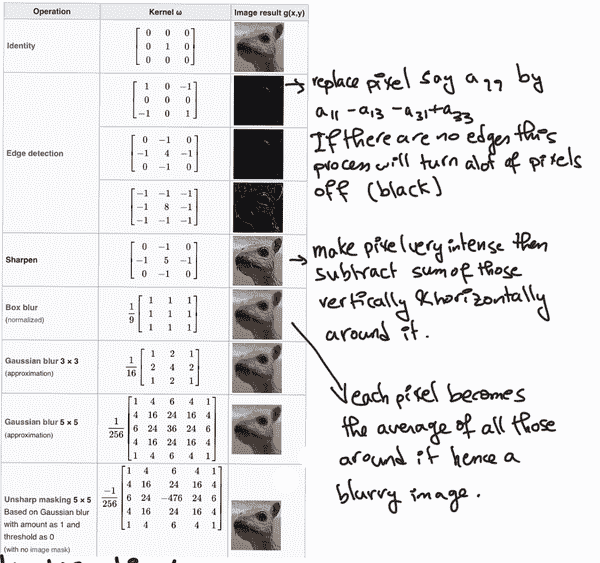 Operation Kernel ω Image result g(x,y)
Identity
[ 0 0 0
0 1 0
0 0 0 ]
Edge detection
[ 1 0 −1
0 0 0
−1 0 1 ]
[ 0 −1 0
−1 4 −1
0 −1 0 ]
[ −1 −1 −1
−1 8 −1
−1 −1 −1 ]
Sharpen
[ 0 −1 0
−1 5 −1
0 −1 0 ]
Box blur
(normalized)
1/9 [ 1 1 1
1 1 1
1 1 1 ]
Gaussian blur 3 × 3
(approximation)
1/16 [ 1 2 1
2 4 2
1 2 1 ]
Gaussian blur 5 × 5
(approximation)
1/256 [ 1 4 6 4 1
4 16 24 16 4
6 24 36 24 6
4 16 24 16 4
1 4 6 4 1 ]
Unsharp masking 5 × 5
Based on Gaussian blur
with amount as 1 and
threshold as 0
(with no image mask)
−1/256 [ 1 4 6 4 1
4 16 24 16 4
6 24 −476 24 6
4 16 24 16 4
1 4 6 4 1 ]
→ replace pixel say a22 by
a11 − a13 − a31 + a33
If there are no edges this
process will turn alot of pixels
off (black)
→ make pixel very intense then
subtract sum of those
vertically & horizontally
around it.
each pixel becomes
the average of all those
around it hence a
blurry image.